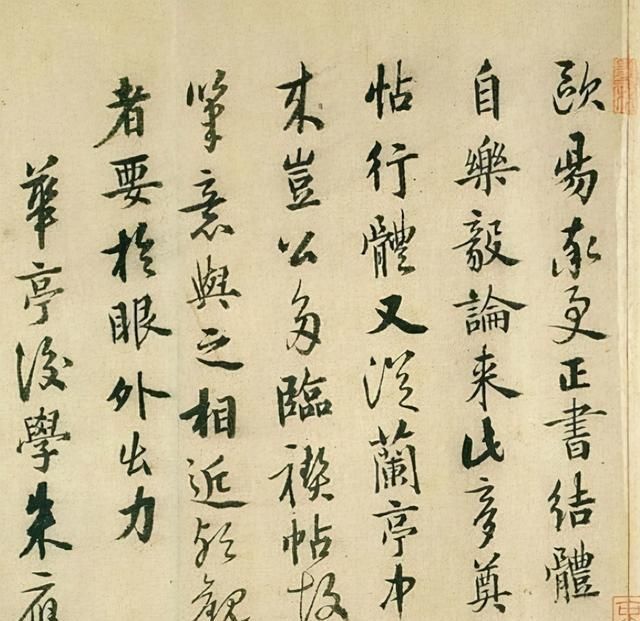 欧昜率更正書結體
自樂毅論来此夢奠
帖行體又從蘭亭中
来豈公多臨禊帖故
筆意與之相近欤觀
者要於眼外出力
華亭後學朱應